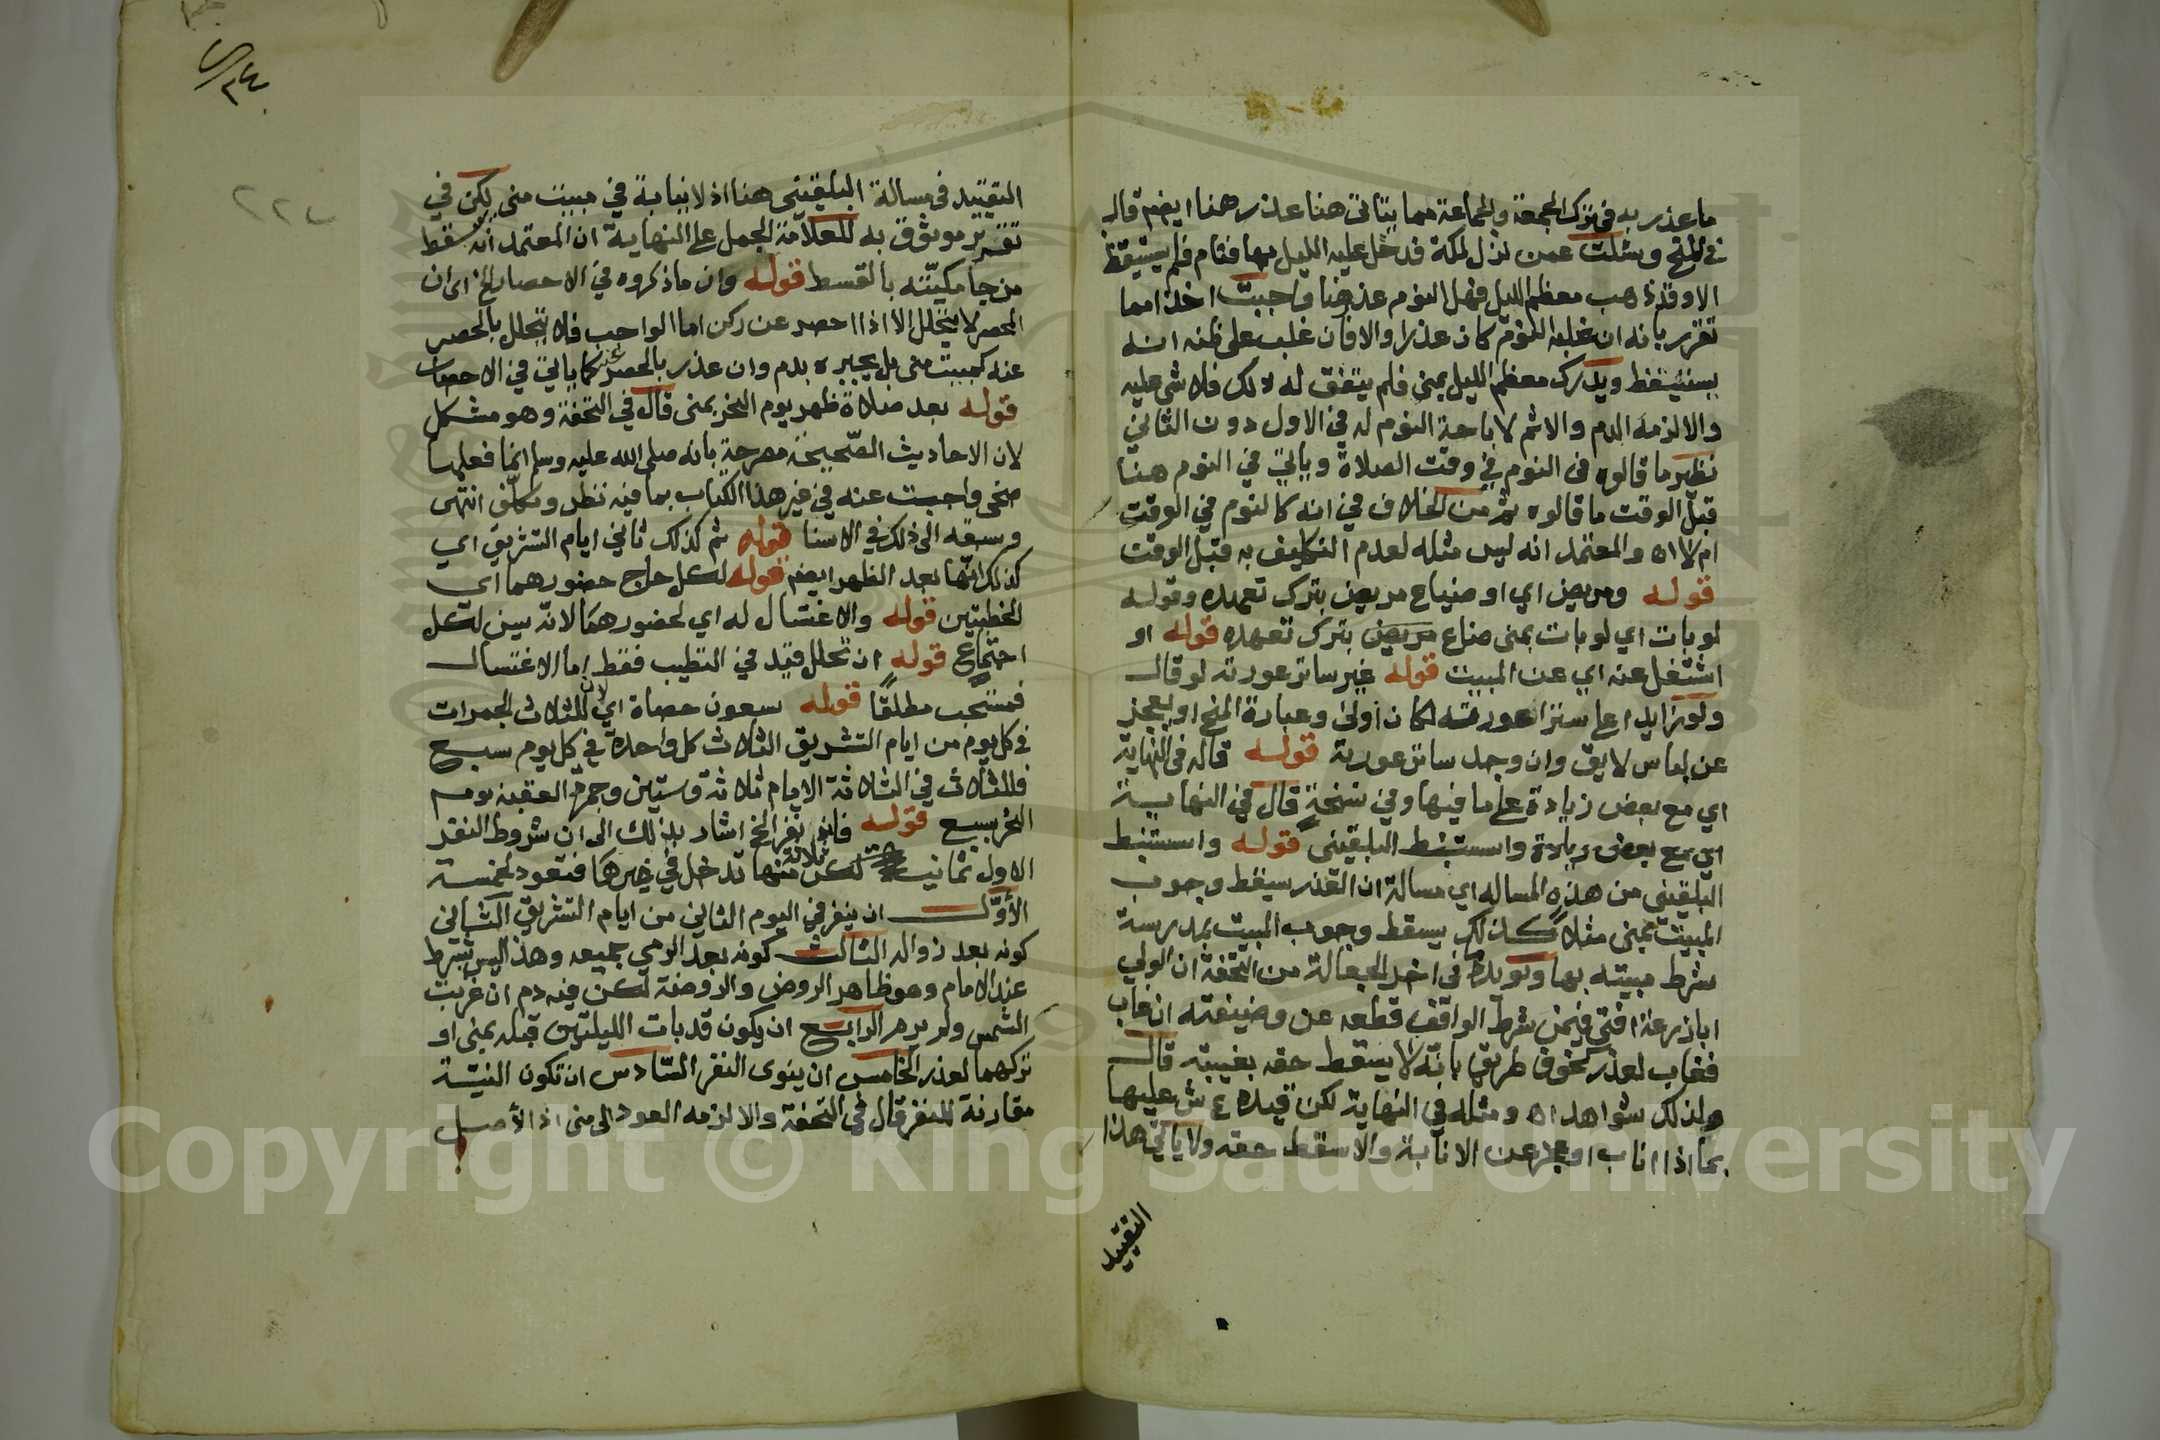 ما عذر به في ترك الجمعة والجماعة مما يتاتى هنا عذر هنا ايضم قال
في المنح وسئلت عمن نزل لمكة فدخل عليه الليل بها فنام فلم يستيقظ
الا وقد ذهب معظم الليل فهل النوم عذر هنا واجبت اخذا مما
تقرر بانه ان غلبه النوم كان عذرا والا فان غلب على ظنه انه
يستيقظ ويدرك معظم الليل بمنى فلم يتفق له ذلك فلا شي عليه
والا لزمه الدم والاثم لاباحة النوم له في الاول دون الثاني
نظير ما قالوه في النوم في وقت الصلاة وياتي في النوم هنا
قبل الوقت ما قالوه ثم من الخلاف في انه كالنوم في الوقت
ام لا اه والمعتمد انه ليس مثله لعدم التكليف به قبل الوقت
قوله ومريض اي او ضياع مريض بترك تعهده وقوله
لو بات اي لو بات بمنى ضاع مريض بترك تعهده قوله او
اشتغل عنه اي عن المبيت قوله غير ساتر عورته لو قال
ولو زايدا على ستر عورته لكان اولى وعبارة المنح او يعجز
عن لباس لايق وان وجد ساتر عورته قوله قاله في النهاية
اي مع بعض زيادة على ما فيها وفي نسخة قال في النهاية
اي مع بعض زيادة واستنبط البلقيني قوله واستنبط
البلقيني من هذه المساله اي مسالة ان العذر سيقط وجوب
المبيت بمنى مثلا كذلك يسقط وجوب المبيت بمدرسة
شرط مبيته بها ويويده في اخذ الجعالة من التحفة ان الولي
ابا زرعة افتى فيمن شرط الواقف قطعه عن وضيفته ان غاب
فغاب لعذر كخوف طريق بانه لا يسقط حقه بغيبته قال
ولذلك شواهد اه ومثله في النهاية لكن قيده ع ش عليها
بما اذا اناب او عجز عن الانابة والا سقط حقه ولا ياتي هذا
التقييد
التقييد في مسالة البلقيني هنا اذ لا نيابة في مبيت منى لكن في
تقرير موثوق به للعلامة الجمل على النهاية ان المعتمد انه يسقط
من جامكيته بالقسط قوله وان ما ذكروه في الاحصار الخ اي ان
المحصر لا يتحلل الا اذا احصر عن ركن اما الواجب فلا يتحلل بالحصر
عنه كمبيت منى بل يجبره بدم وان عذر بالحصر عنه كما ياتي في الاحصار
قوله بعد صلاة ظهر يوم النحر بمنى قال في التحفة وهو مشكل
لان الاحاديث الصحيحة مصرحة بانه صلى الله عليه وسلم انما فعلها
ضحى واجبت عنه في غير هذا الكتاب بما فيه نظر وتكلف انتهى
وسبقه الى ذلك في الاسنا قوله ثم كذلك ثاني ايام التشريق اي
كذلك انها بعد الظهر ايضم قوله لكل حاج حضورهما اي
الخطبتين قوله والاغتسال له اي لحضورهما لانه يسن لكل
اجتماع قوله ان تحلل قيد في التطيب فقط اما الاغتسال
فمستحب مطلقا قوله سبعون حصاة اي لان للثلاث الجمرات
في كل يوم من ايام التشريق الثلاث كل واحدة في كل يوم سبع
فللثلاث في الثلاثة الايام ثلاثة وستين وجمرة العقبة يوم
النحر بسبع قوله فان نفر الخ اشار بذلك الى ان شروط النفر
الاول ثمانية لكن ثلاثة منها تدخل في غيرها فتعود لخمسة
الأوّل ان ينفر في اليوم الثاني من ايام التشريق الثاني
كونه بعد زواله الثالث كونه بعد الرمي جميعه وهذا ليس شرط
عند الامام وهو ظاهر الروض والروضة لكن فيه دم ان غربت
الشمس ولم يرم الرابع ان يكون قد بات الليلتين قبله بمنى او
تركهما لعذر الخامس ان ينوى النفر السّادس ان تكون النية
مقارنة للنفر قال في التحفة والا لزمه العود الى منى اذ الأصل
Copyright © King Saud University